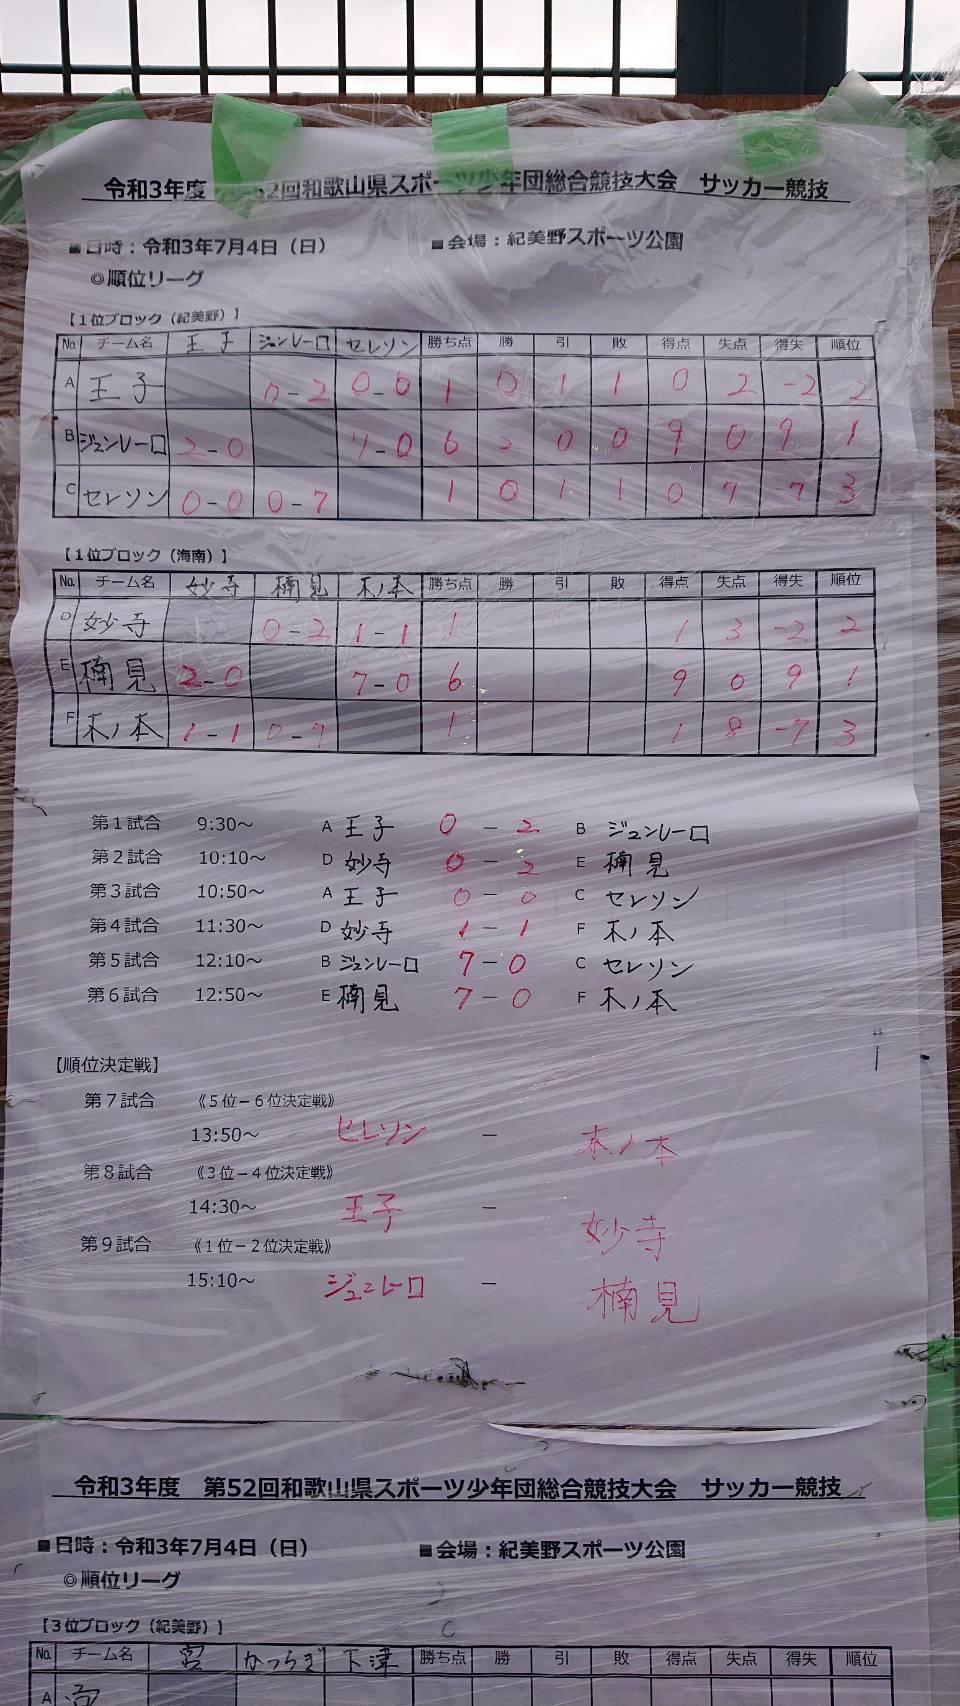 令和3年度 52回和歌山県スポーツ少年団総合競技大会 サッカー競技
■日時：令和3年7月4日（日） ■会場：紀美野スポーツ公園
◎順位リーグ
【１位ブロック（紀美野）】
No. チーム名 王子 ジュンレーロ セレソン 勝ち点 勝 引 敗 得点 失点 得失 順位
A 王子 0-2 0-0 1 0 1 1 0 2 -2 2
B ジュンレーロ 2-0 7-0 6 2 0 0 9 0 9 1
C セレソン 0-0 0-7 1 0 1 1 0 7 -7 3
【１位ブロック（海南）】
No. チーム名 妙寺 楠見 木ノ本 勝ち点 勝 引 敗 得点 失点 得失 順位
D 妙寺 0-2 1-1 1 1 3 -2 2
E 楠見 2-0 7-0 6 9 0 9 1
F 木ノ本 1-1 0-7 1 1 8 -7 3
第１試合 9:30～ A 王子 0 － 2 B ジュンレーロ
第２試合 10:10～ D 妙寺 0 － 2 E 楠見
第３試合 10:50～ A 王子 0 － 0 C セレソン
第４試合 11:30～ D 妙寺 1 － 1 F 木ノ本
第５試合 12:10～ B ジュンレーロ 7 － 0 C セレソン
第６試合 12:50～ E 楠見 7 － 0 F 木ノ本
【順位決定戦】
第７試合 《５位－６位決定戦》
13:50～ セレソン － 木ノ本
第８試合 《３位－４位決定戦》
14:30～ 王子 － 妙寺
第９試合 《１位－２位決定戦》
15:10～ ジュンレーロ － 楠見
令和3年度 第52回和歌山県スポーツ少年団総合競技大会 サッカー競技
■日時：令和3年7月4日（日） ■会場：紀美野スポーツ公園
◎順位リーグ
【３位ブロック（紀美野）】
No. チーム名 宮 かつらぎ 下津 勝ち点 勝 引 敗 得点 失点 得失 順位
A 宮